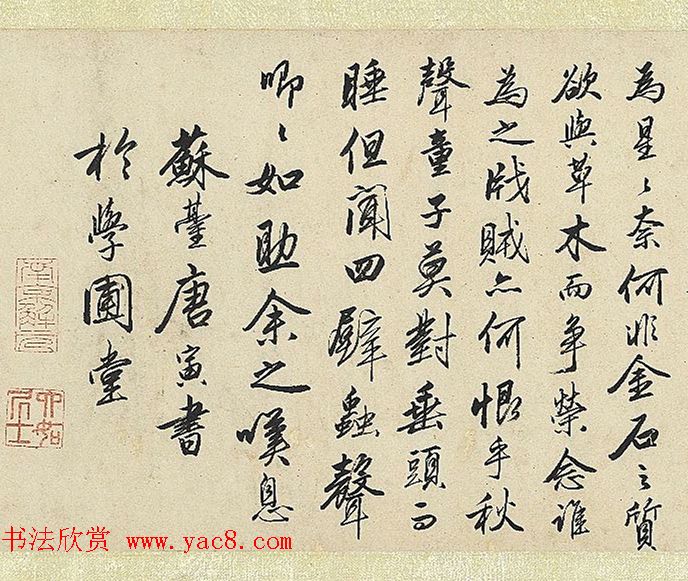 為星〻奈何非金石之質
欲與草木而爭榮念誰
為之戕賊亦何恨乎秋
聲童子莫對垂頭而
睡但聞四壁蟲聲
唧〻如助余之嘆息
蘇臺唐寅書
於學圃堂
南京解元
六如居士
书法欣赏 www.yac8.com